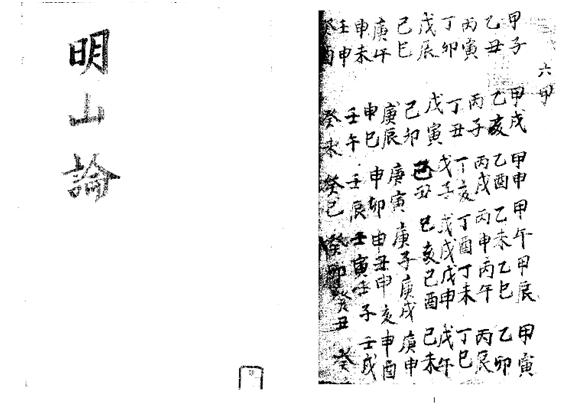 明山論
六甲
甲子 甲戌 甲申 甲午 甲辰 甲寅
乙丑 乙亥 乙酉 乙未 乙巳 乙卯
丙寅 丙子 丙戌 丙申 丙午 丙辰
丁卯 丁丑 丁亥 丁酉 丁未 丁巳
戊辰 戊寅 戊子 戊戌 戊申 戊午
己巳 己卯 己丑 己亥 己酉 己未
庚午 庚辰 庚寅 庚子 庚戌 庚申
申未 申巳 申卯 申丑 申亥 申酉
壬申 壬午 壬辰 壬寅 壬子 壬戌
癸酉 癸未 癸巳 癸卯 癸丑 癸